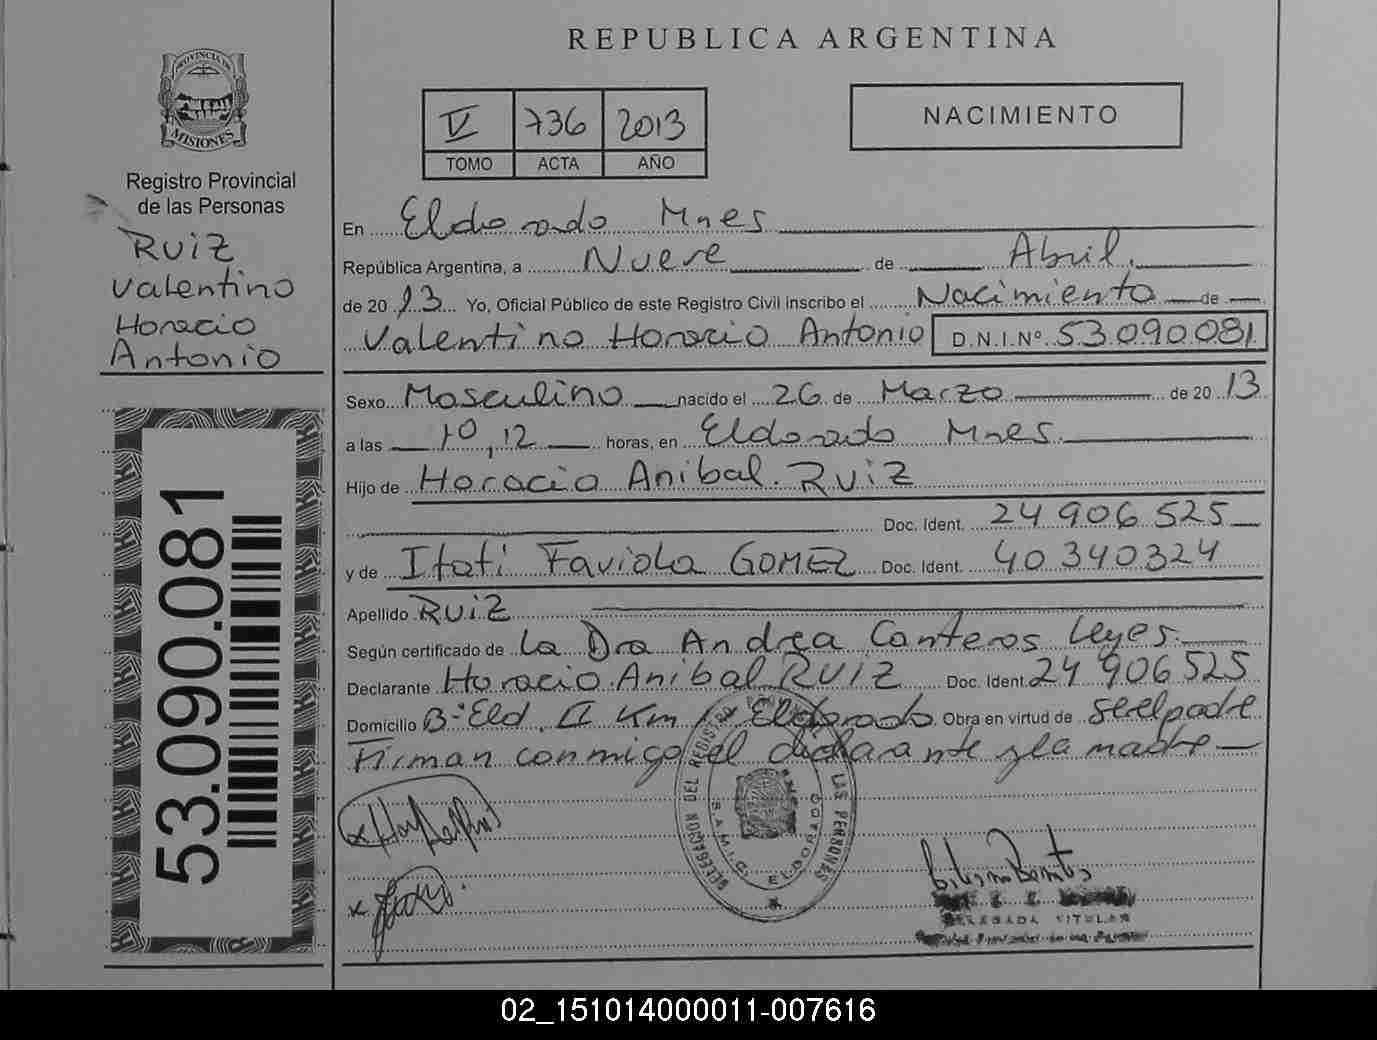 REPUBLICA ARGENTINA
PROVINCIA DE
MISIONES
Registro Provincial
de las Personas
RUIZ
Valentino
Horacio
Antonio
53.090.081
V 736 2013
TOMO ACTA AÑO
NACIMIENTO
En Eldorado Mnes
República Argentina, a Nueve de Abril.
de 20 13 Yo, Oficial Público de este Registro Civil inscribo el Nacimiento de
Valentino Horacio Antonio D.N.I.Nº 53.090.081
Sexo Masculino nacido el 26 de Marzo de 20 13
a las 10,12 horas, en Eldorado Mnes.
Hijo de Horacio Anibal RUIZ
Doc. Ident. 24 906 525
y de Itati Faviola GOMEZ Doc. Ident. 40 340 324
Apellido RUIZ
Según certificado de La Dra Andrea Canteros Leyes.
Declarante Horacio Anibal RUIZ Doc. Ident. 24 906 525
Domicilio B° Eld. II Km Eldorado Obra en virtud de ser el padre
Firman conmigo el declarante y la madre
DELEGACION DEL REGISTRO LAS PERSONAS
S.A.M.I.C. ELDORADO
DELEGADA TITULAR
02_151014000011-007616